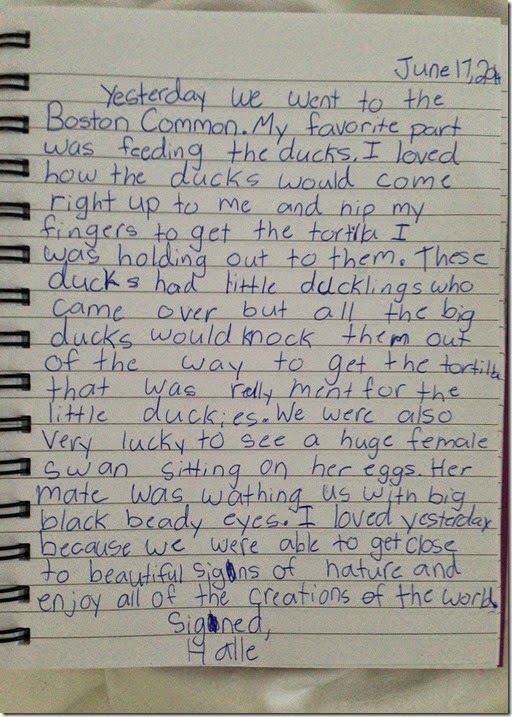 June 17, 20
Yesterday we went to the
Boston Common. My favorite part
was feeding the ducks. I loved
how the ducks would come
right up to me and nip my
fingers to get the tortilla I
was holding out to them. These
ducks had little ducklings who
came over but all the big
ducks would knock them out
of the way to get the tortilla
that was relly ment for the
little duckies. We were also
very lucky to see a huge female
swan sitting on her eggs. Her
mate was wathing us with big
black beady eyes. I loved yesterday
because we were able to get close
to beautiful signs of nature and
enjoy all of the creations of the world.
Signed,
Halle